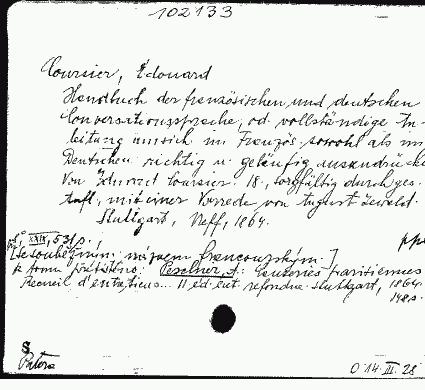 102133
Coursier, Edouard
Handbuch der französischen und deutschen
Conversationssprache, od. vollständige An-
leitung um sich im Französ. sowohl als im
Deutschen richtig u. geläufig auszudrücke
Von Edouard Coursier. 18., sorgfältig durchges.
Aufl., mit einer Vorrede von August Lewald.
Stuttgart, Neff, 1864.
XXIX, 531 s.
[Se souběžným názvem francouzským.]
K tomu přitištěno: Peschier, A: Causeries parisiennes
Recueil d'entretiens... 11 éd. ent. refondue. Stuttgart, 1864
148 s.
S
O 14. III. 28